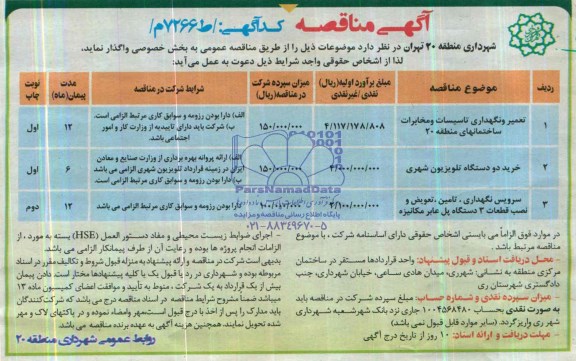 آگهی مناقصه
کد آگهی: /ط۷۲۶۶م/
شهرداری منطقه ۲۰ تهران در نظر دارد موضوعات ذیل را از طریق مناقصه عمومی به بخش خصوصی واگذار نماید.
لذا از اشخاص حقوقی واجد شرایط ذیل دعوت به عمل می‌آید:
ردیف
موضوع مناقصه
مبلغ برآورد اولیه(ریال) نقدی /غیرنقدی
میزان سپرده شرکت در مناقصه(ریال)
شرایط شرکت در مناقصه
مدت پیمان(ماه)
نوبت چاپ
۱
تعمیر ونگهداری تاسیسات ومخابرات
ساختمانهای منطقه ۲۰
۴/۱۱۷/۱۷۸/۸۰۸
۱۵۰/۰۰۰/۰۰۰
الف) دارا بودن رزومه و سوابق کاری مرتبط الزامی است.
ب) شرکت باید دارای تاییدیه از وزارت کار و امور
اجتماعی باشد.
۱۲
اول
۲
خرید دو دستگاه تلویزیون شهری
۱۵۰/۰۰۰/۰۰۰
الف) ارائه پروانه بهره برداری از وزارت صنایع و معادن
ایران در زمینه قرارداد تلویزیون شهری الزامی می باشد
ب) دارا بودن رزومه و سوابق کاری مرتبط الزامی است.
۶
اول
۳
سرویس نگهداری ، تامین ،تعویض و
نصب قطعات ۳ دستگاه پل عابر مکانیزه
دارا بودن رزومه و سوابق کاری مرتبط الزامی می باشد
۱۲
دوم
ParsNamadData
پایگاه اطلاع رسانی مناقصه و مزایده
۰۲۱-۸۸۳۴۹۶۷۰-۵
در موارد فوق الزاماً می بایستی اشخاص حقوقی دارای اساسنامه شرکت ، با موضوع
مناقصه مرتبط باشد .
- محل دریافت اسناد و قبول پیشنهاد: واحد قراردادها مستقر در ساختمان
مرکزی منطقه به نشانی: شهرری، میدان هادی ساعی، خیابان شهرداری، جنب
دادگستری شهرستان ری
- میزان سپرده نقدی و شماره حساب: مبلغ سپرده شرکت در مناقصه باید
به صورت نقدی بحساب ۱۰۰۴۵۶۸۴۸۰ جاری نزد بانک شهر شعبه شهرداری
شهر ری واریز گردد. (سایر موارد قابل قبول نمی باشد)
- مهلت دریافت و ارائه اسناد: ۱۰ روز از تاریخ درج آگهی
- اجرای ضوابط زیست محیطی و مفاد دستور العمل (HSE) بسته به مورد ، از
الزامات انجام پروژه ها بوده و رعایت آن از طرف پیمانکار الزامی می باشد.
بدیهی است شرکت در مناقصه و ارائه پیشنهاد به منزله قبول شروط و تکالیف مقرر در اسناد
مربوطه بوده و شهرداری در رد یا قبول یک یا کلیه پیشنهادها مختار است. دادن پیمان
بیش از یک قرارداد به یک شرکت ، منوط به تأیید و موافقت اعضای کمیسیون ماده ۱۳
میباشد ضمناً مشروح شرایط مناقصه در اسناد مناقصه درج می باشد که شرکت‌کنندگان
باید مدارک را پس از اخذ با درج قبول است مهر وامضاء نموده و در پاکتهای لاک و مهر
شده تحویل نمایند. همچنین هزینه آگهی به عهده برنده مناقصه می باشد.
روابط عمومی شهرداری منطقه ۲۰